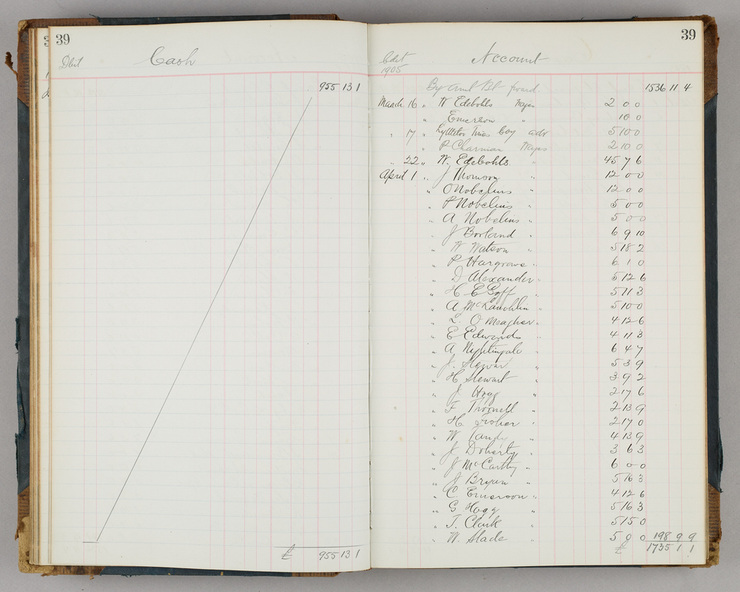 39
Cash
955 13 1
£ 955 13 1
39
1905
Account
By amt fwd 1536 11 4
March 16 " W. Edebohls Wages 2 0 0
" Emerson " 10 0
" 17 " 5 10 0
" P. Charman Wages 2 10 0
" 22 " W. Edebohls " 45 7 6
April 1 " J Thomson " 12 0 0
" O Nobelius " 12 0 0
" P Nobelius " 5 0 0
" A Nobelius " 5 0 0
" J Borland " 6 9 10
" W Watson " 5 18 2
" P Hargrave " 6 1 0
" D Alexander " 5 12 6
" H E Goff " 5 11 3
" A McLauchlin " 5 10 0
" O Meagher " 4 12 6
" E Edwards " 4 11 3
" A Nightingale " 6 4 7
" J. " 5 3 9
" H Stewart " 3 9 2
" J Hogg " 2 17 6
" F " 2 13 9
" H " 2 17 0
" W " 4 13 9
" J Doherty " 3 6 3
" J McCarthy " 6 0 0
" J Bryan " 5 16 3
" C Emerson " 4 12 6
" G Hogg " 5 16 3
" T. Clark " 5 15 0
" W. Slade " 5 9 0 198 9 9
£ 1735 1 1